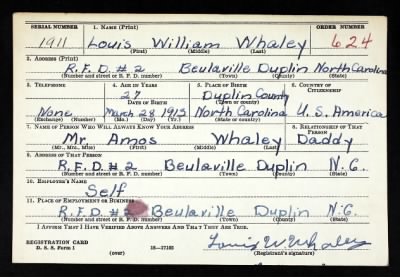 SERIAL NUMBER 1. NAME (Print) ORDER NUMBER
1911 Louis William Whaley 624
(First) (Middle) (Last)
2. ADDRESS (Print)
R.F.D. # 2 Beulaville Duplin North Carolina
(Number and street or R. F. D. number) (Town) (County) (State)
3. TELEPHONE 4. AGE IN YEARS 5. PLACE OF BIRTH 6. COUNTRY OF CITIZENSHIP
27 Duplin County
DATE OF BIRTH (Town or county)
None March 28 1913 North Carolina U.S. America
(Exchange) (Number) (Mo.) (Day) (Yr.) (State or country)
7. NAME OF PERSON WHO WILL ALWAYS KNOW YOUR ADDRESS 8. RELATIONSHIP OF THAT PERSON
Mr Amos Whaley Daddy
(Mr., Mrs., Miss) (First) (Middle) (Last)
9. ADDRESS OF THAT PERSON
R.F.D. # 2 Beulaville Duplin N.C.
(Number and street or R. F. D. number) (Town) (County) (State)
10. EMPLOYER'S NAME
Self
11. PLACE OF EMPLOYMENT OR BUSINESS
R.F.D. # 2 Beulaville Duplin N.C.
(Number and street or R. F. D. number) (Town) (County) (State)
I AFFIRM THAT I HAVE VERIFIED ABOVE ANSWERS AND THAT THEY ARE TRUE.
REGISTRATION CARD
D. S. S. Form 1 16—17105 Louis W Whaley
(over) (Registrant's signature)